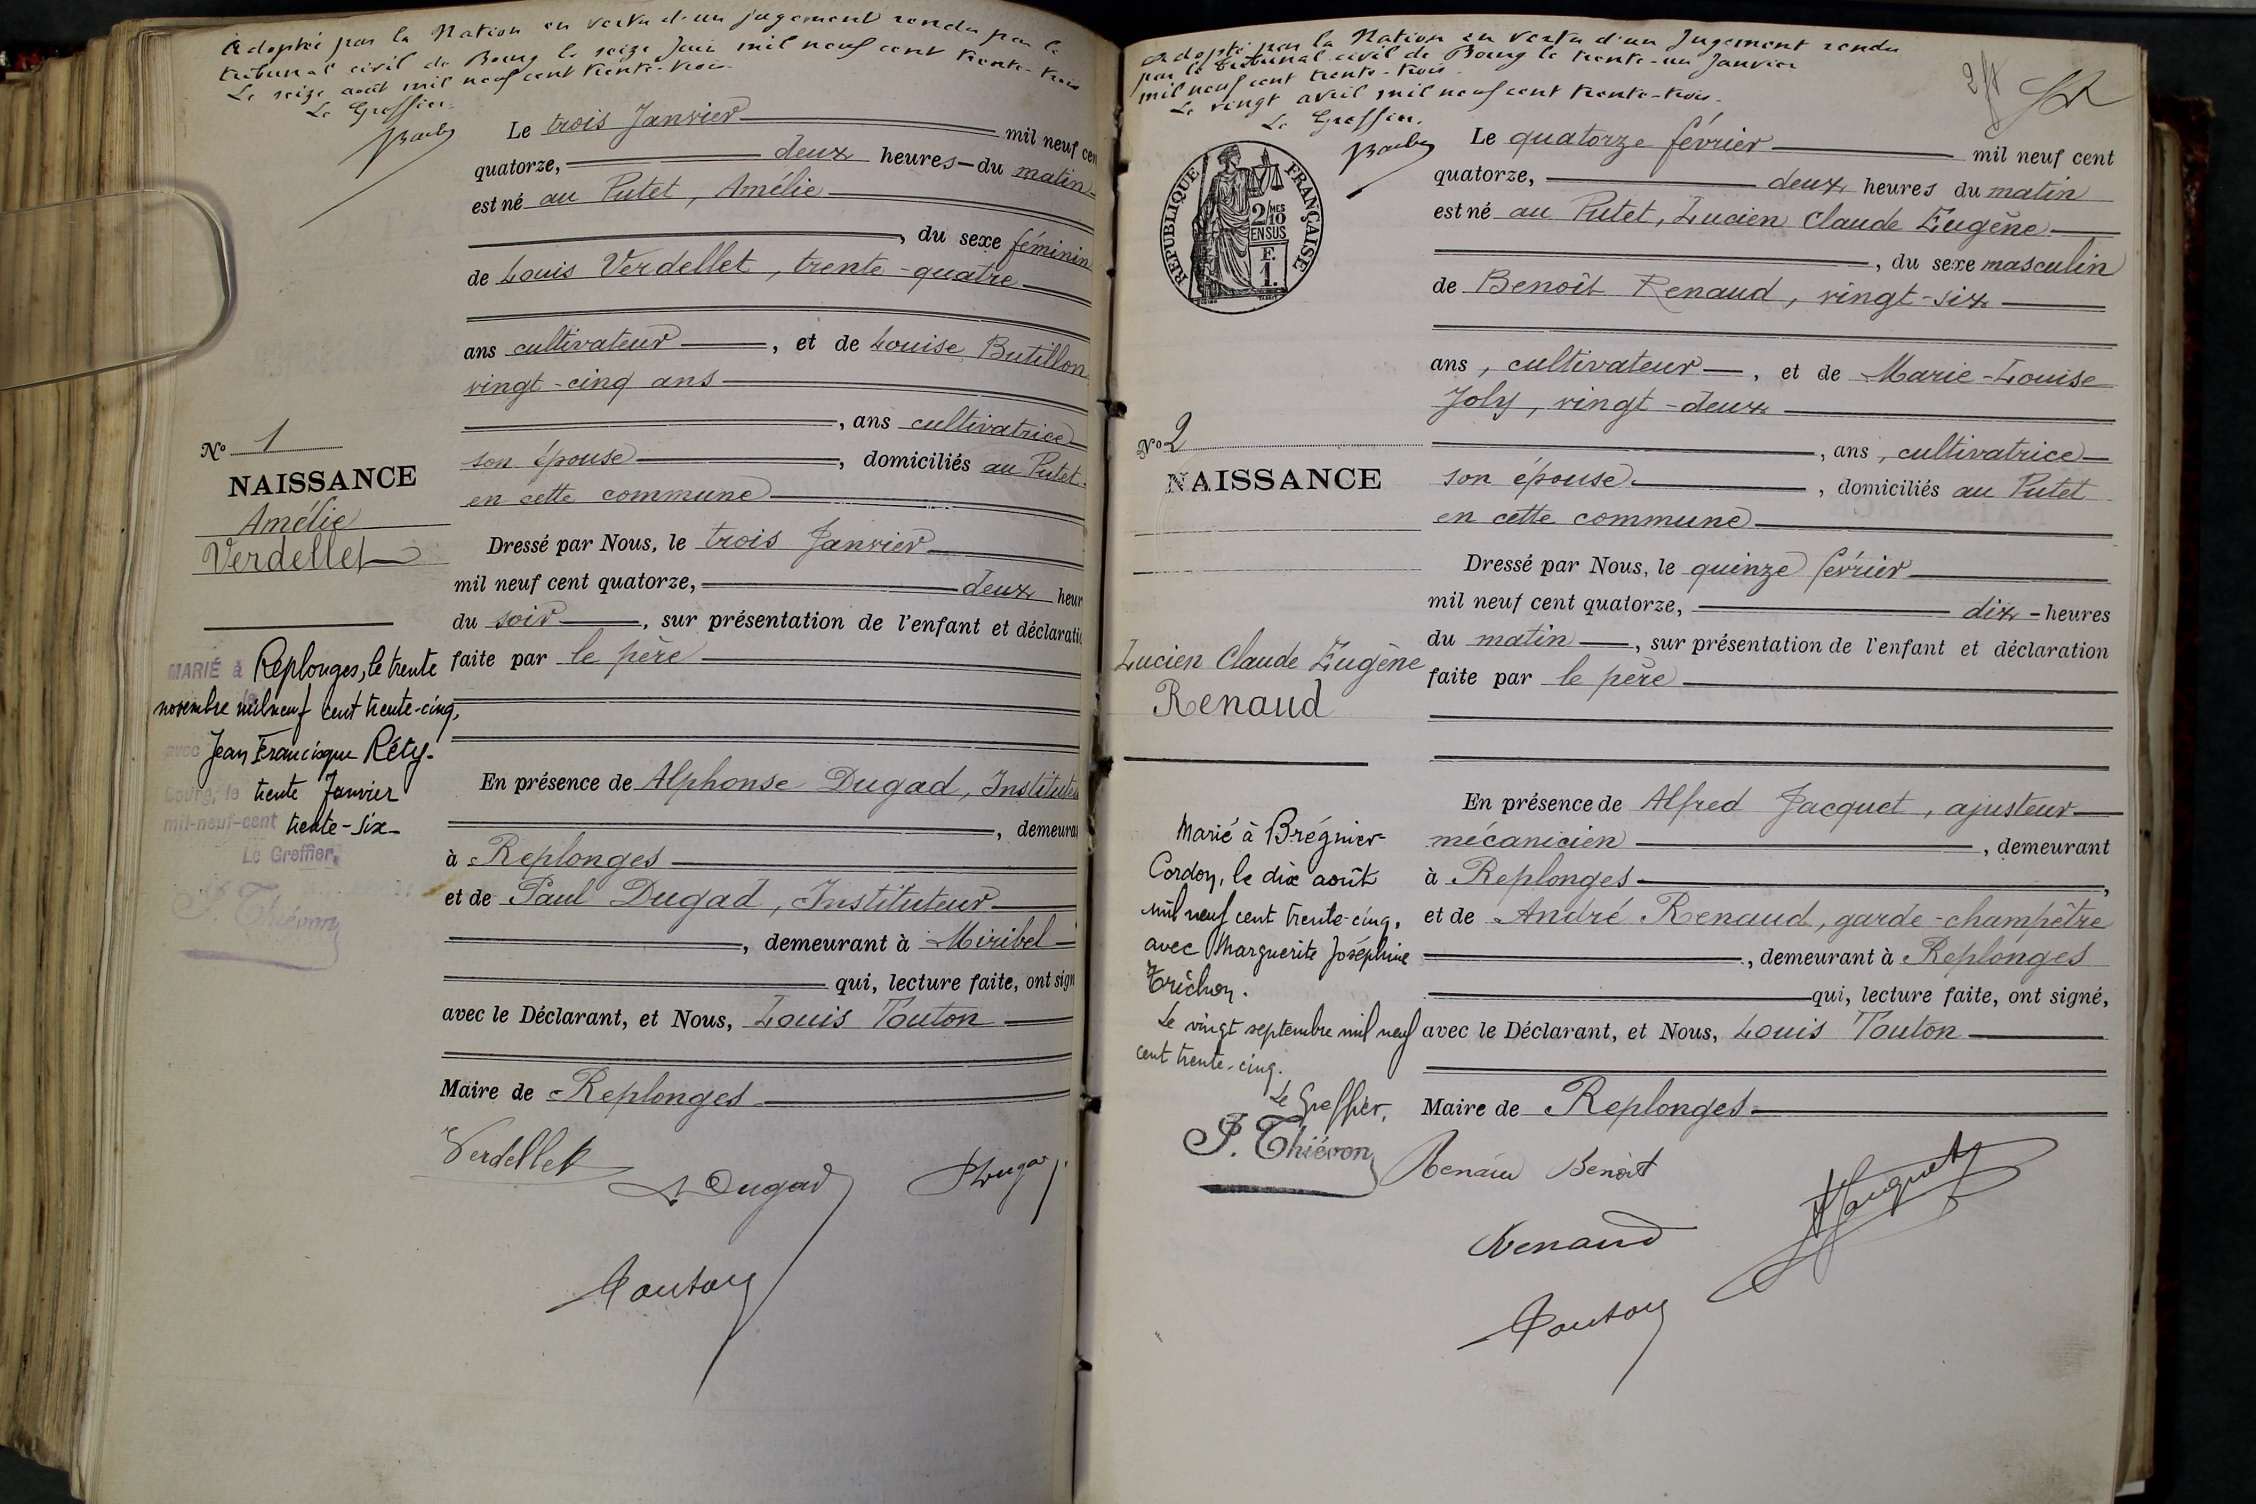 Adoptée par la Nation en vertu d'un jugement rendu par le
tribunal civil de Bourg le seize Juin mil neuf cent trente-trois
Le seize août mil neuf cent trente-trois.
Le Greffier.
Le trois Janvier mil neuf cen
quatorze, deux heures du matin
est né au Putet, Amélie
, du sexe féminin
de Louis Verdellet, trente-quatre
ans cultivateur , et de Louise Butillon
vingt-cinq ans
, ans cultivatrice
son épouse , domiciliés au Putet
en cette commune
Dressé par Nous, le trois Janvier
mil neuf cent quatorze, deux heur
du soir , sur présentation de l'enfant et déclaratio
faite par le père
En présence de Alphonse Dugad, Institute
, demeura
à Replonges
et de Paul Dugad, Instituteur
, demeurant à Miribel
qui, lecture faite, ont sign
avec le Déclarant, et Nous, Louis Touton
Maire de Replonges
Verdellet
A Dugad
P Dugad
Touton
No 1
NAISSANCE
Amélie
Verdellet
MARIÉ à Replonges, le trente
novembre mil neuf cent trente-cinq,
avec Jean Francisque Réty.
Bourg, le trente Janvier
mil-neuf-cent trente-six
Le Greffier,
P. Thiévon
Adopté par la Nation en vertu d'un Jugement rendu
par le tribunal civil de Bourg le trente-un Janvier
mil neuf cent trente-trois.
Le vingt avril mil neuf cent trente-trois.
Le Greffier.
REPUBLIQUE FRANÇAISE
2/10 MES
EN SUS
F.
1.
No 2
NAISSANCE
Lucien Claude Eugène
Renaud
Marié à Brégnier-
Cordon, le dix août
mil neuf cent trente-cinq,
avec Marguerite Joséphine
Trichon.
Le vingt septembre mil neuf
cent trente-cinq.
Le Greffier,
P. Thiévon
Le quatorze février mil neuf cent
quatorze, deux heures du matin
est né au Putet, Lucien Claude Eugène
, du sexe masculin
de Benoît Renaud, vingt-six
ans, cultivateur , et de Marie-Louise
Joly, vingt-deux
, ans, cultivatrice
son épouse , domiciliés au Putet
en cette commune
Dressé par Nous, le quinze février
mil neuf cent quatorze, dix heures
du matin , sur présentation de l'enfant et déclaration
faite par le père
En présence de Alfred Jacquet, ajusteur
mécanicien , demeurant
à Replonges ,
et de André Renaud, garde-champêtre
, demeurant à Replonges
qui, lecture faite, ont signé,
avec le Déclarant, et Nous, Louis Touton
Maire de Replonges
Renaud Benoit
Renaud
Jacquet
Touton